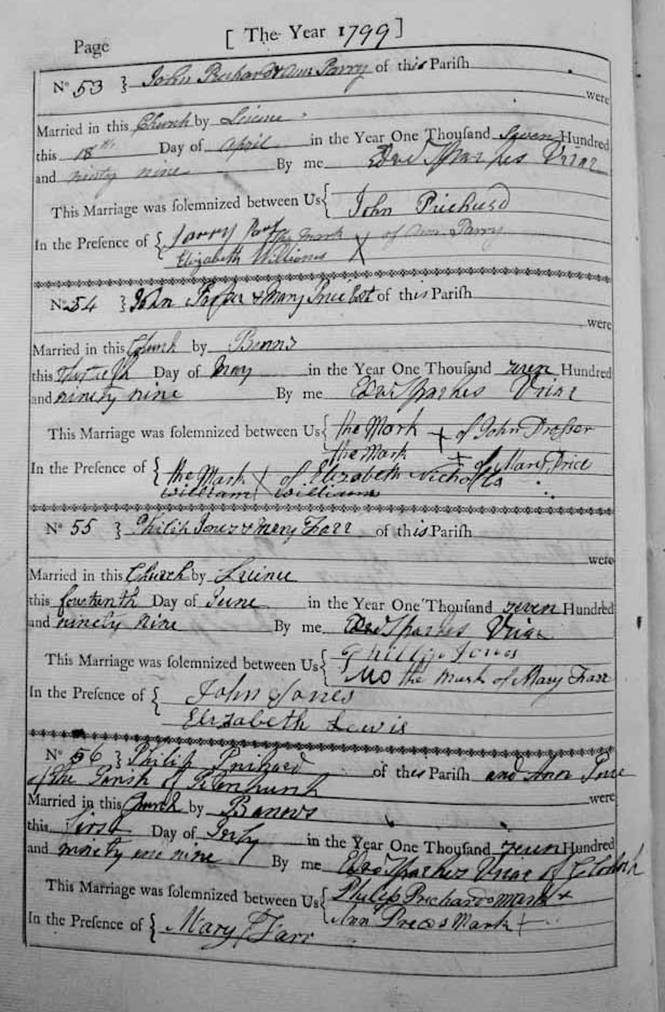 Page [ The Year 1799 ]
No 53 } John Prichard & Ann Parry of this Parish
were
Married in this Church by Licinse
this 18th Day of April in the Year One Thousand Seven Hundred
and ninty nine By me Edwd Sparkes Vriar
This Marriage was solemnized between Us { John Prichard
In the Presence of { the mark X of Ann Parry
Elizabeth Williams
No 54 } John & Mary Price of this Parish
were
Married in this Church by Banns
this Day of May in the Year One Thousand seven Hundred
and ninety nine By me Edwd Sparkes Vriar
This Marriage was solemnized between Us { the Mark + of John Prosser
the Mark + of Mary Price
In the Presence of { the Mark X of Elizabeth Nicholls
William Williams
No 55 } Philip Jones & Mary Farr of this Parish
were
Married in this Church by
this Day of June in the Year One Thousand seven Hundred
and ninety nine By me Edwd Sparkes Vriar
This Marriage was solemnized between Us { Phillip Jones
the mark of Mary Farr
In the Presence of { John Jones
Elizabeth Lewis
No 56 } Philip Prichard of this Parish and Ann Price
of the Parish of
were
Married in this Church by
this first Day of July in the Year One Thousand seven Hundred
and nine By me Edwd Sparkes Vriar of Clodock
This Marriage was solemnized between Us { Philip Prichards mark +
Ann Preces Mark +
In the Presence of { Mary Farr